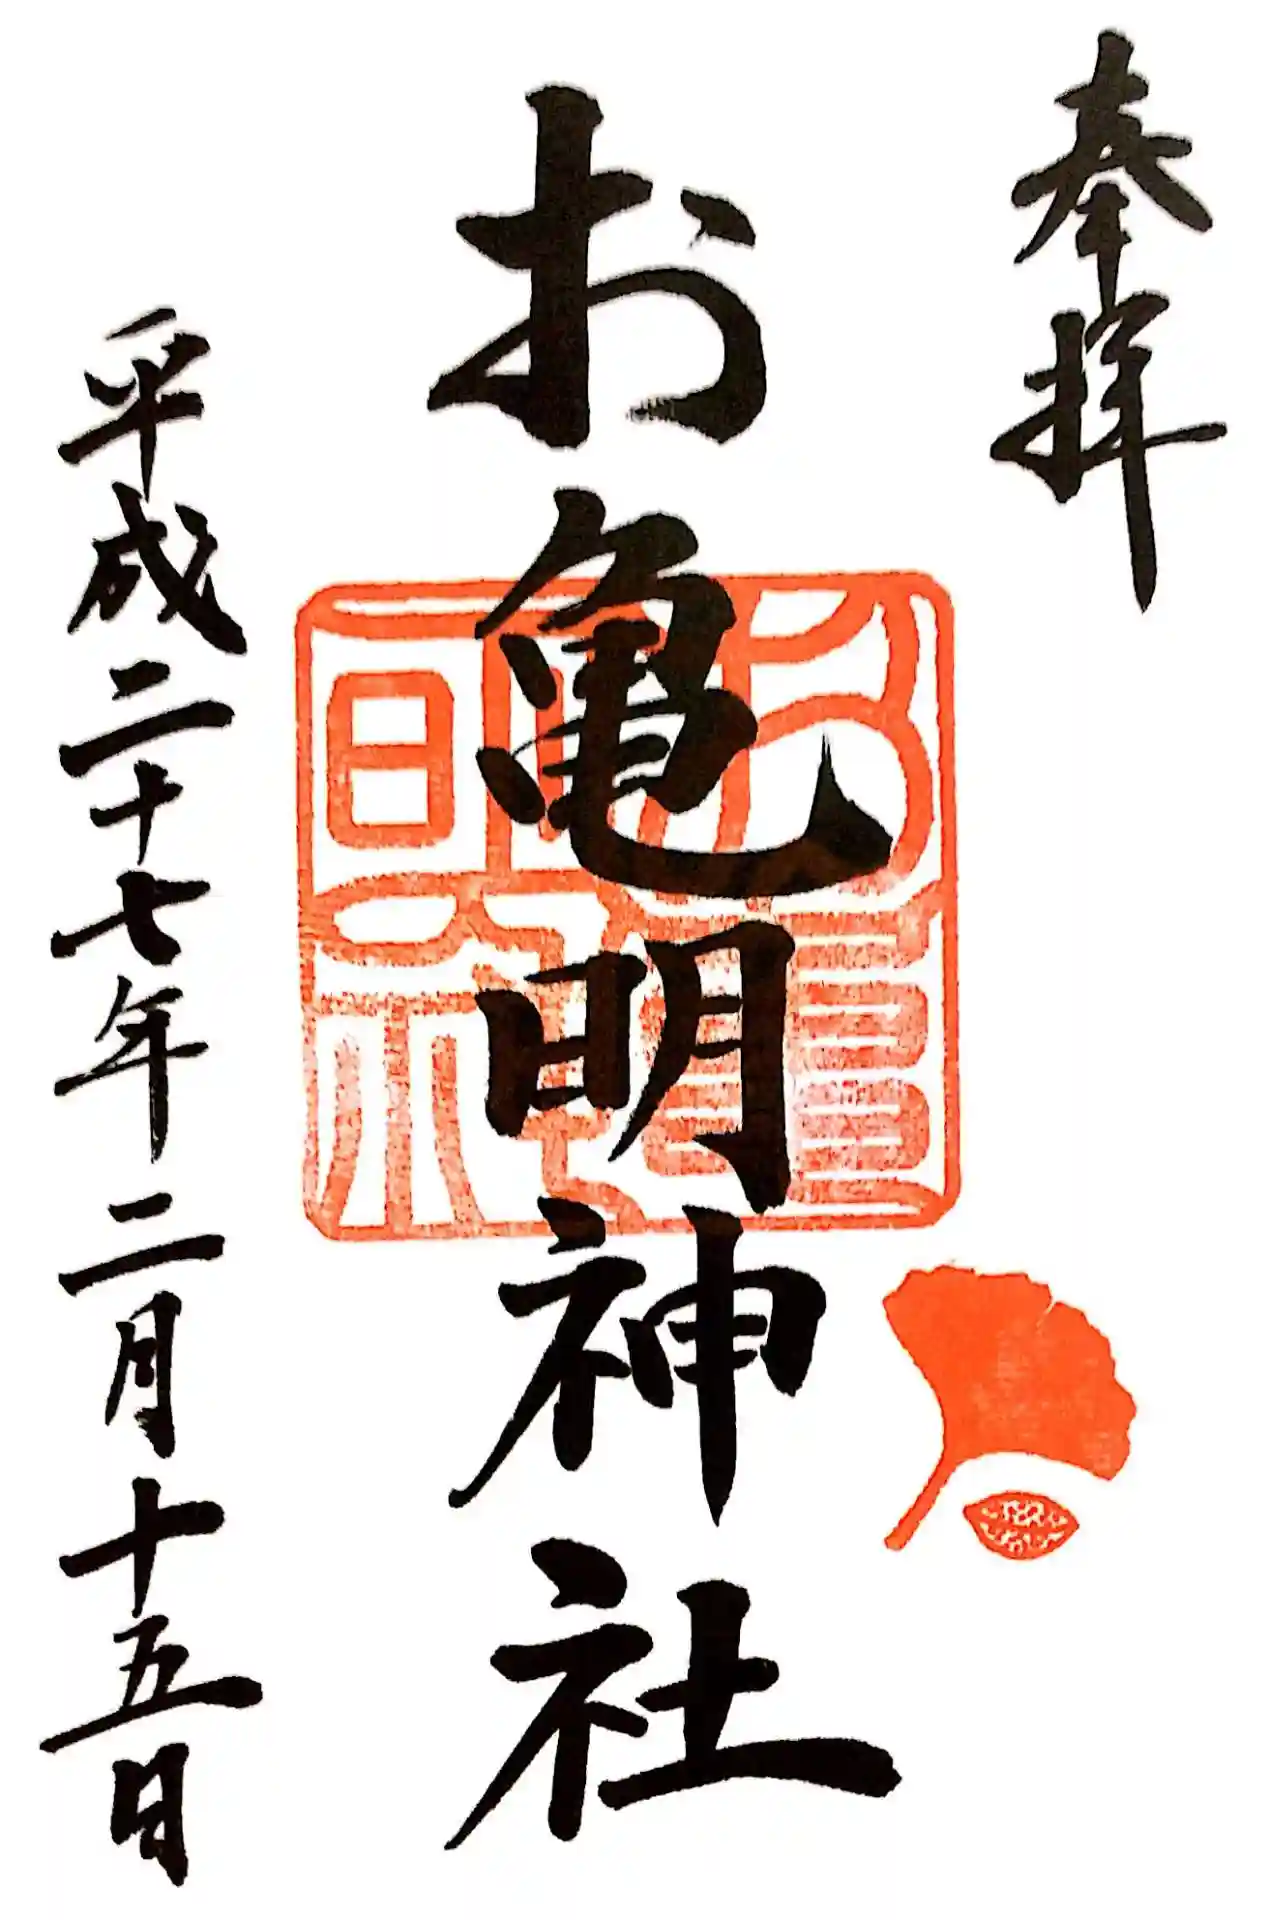 奉拝
お亀明神社
平成二十七年二月十五日